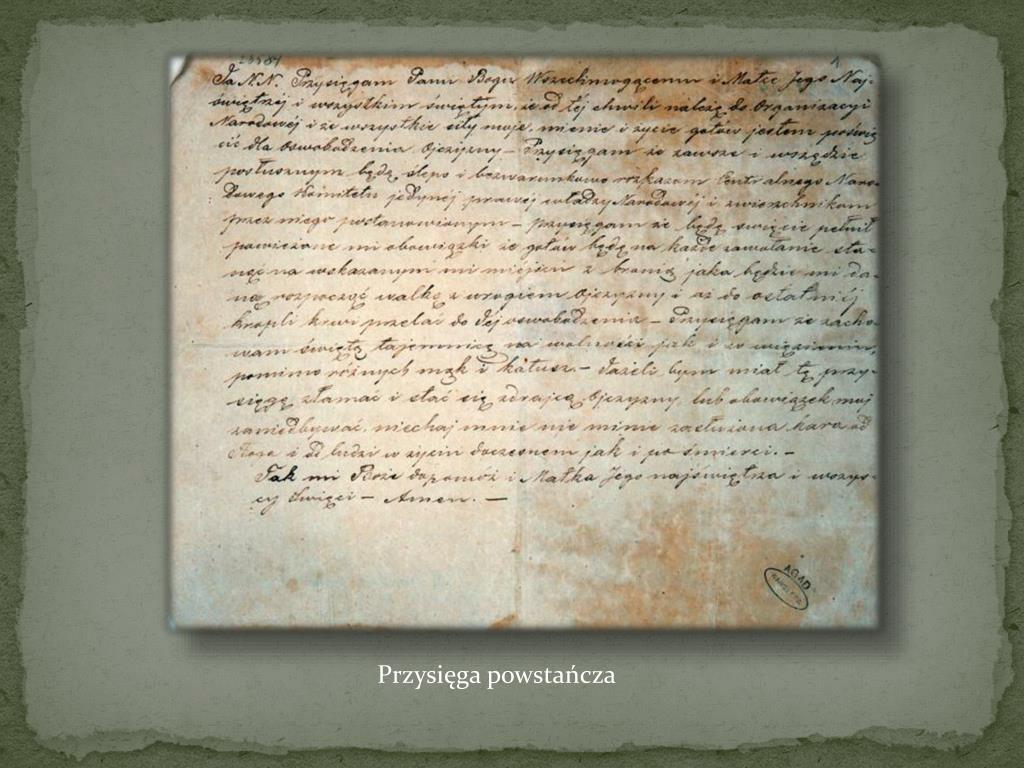 Ja N.N. Przysięgam Panu Bogu Wszechmogącemu i Matce Jego Naj-
świętrzéj i wszystkim świętym, że od téj chwili należę do Organizacyi
Narodowéj i że wszystkie siły moje, mienie i życie gotów jestem poświę
cić dla Oswobodzenia Ojczyzny – Przysięgam że zawsze i wszędzie
posłusznym będę ślepo i bezwarunkowo rozkazom Centralnego Naro-
dowego Komitetu jedynéj prawéj władzy Narodowéj i zwierzchnikom
przez niego postanowionym – przysięgam że będę święcie pełnił
powierzone mi obowiązki że gotów będę na każde zawołanie sta-
nąć na wskazanym mi miejscu z bronią jaka będzie mi da-
ną rozpocząć walkę z wrogiem Ojczyzny i aż do ostatniéj
kropli krwi przelać do Jéj oswobodzenia – Przysięgam że zacho-
wam świętą tajemnicę na wolności jak i w więzieniu,
pomimo różnych mąk i katusz. – Jażeli bym miał tę przy-
sięgę złamać i stać się zdrajcą Ojczyzny lub obowiązek mój
zaniedbywać, niechaj mnie nie minie zasłużona kara od
Boga i od ludzi w życiu doczesnem jak i po śmierci. –
Tak mi Boże dopomóż i Matka Jego najświętsza i wszys-
cy Święci – Amen. –
AGAD
Przysięga powstańcza